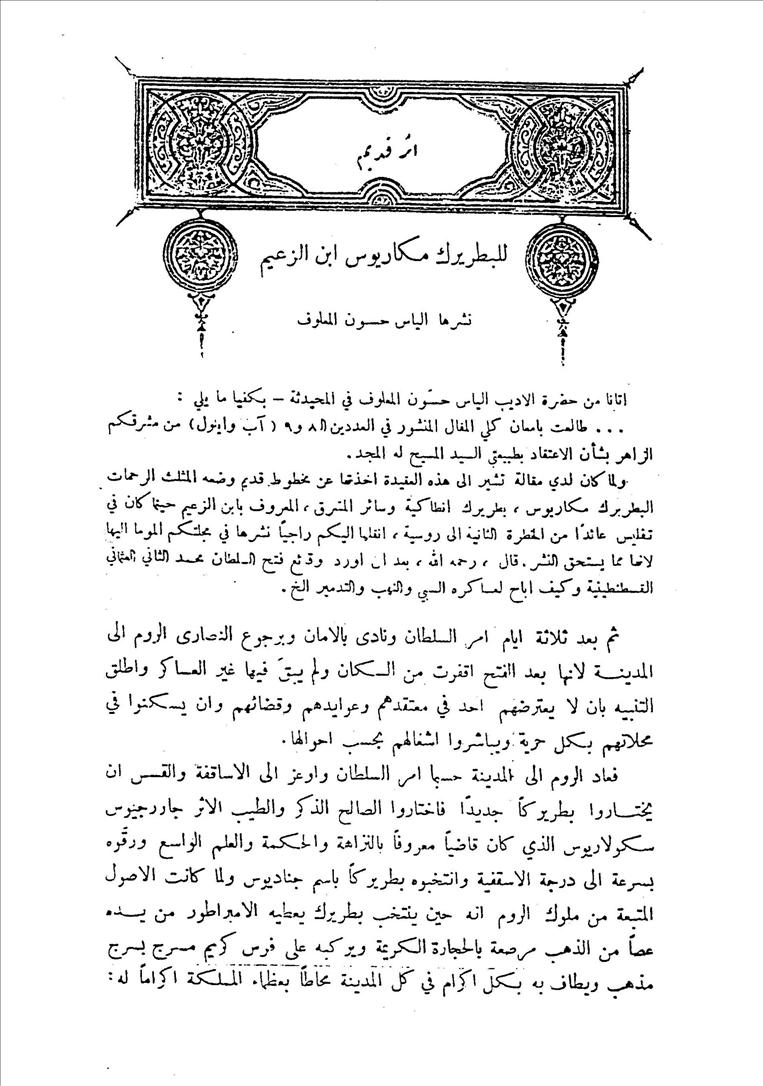 اثر قديم
للبطريرك مكاريوس ابن الزعيم
نشرها الياس حسون المعلوف
اتانا من حضرة الاديب الياس حسّون المعلوف في المحيدثة – بكفيا ما يلي :
... طالعت بامعان كلي المقال المنشور في العددين الـ٨ و٩ ( آب وايلول ) من مشرقكم
الزاهر بشأن الاعتقاد بطبيعتي السيد المسيح له المجد.
ولما كان لدي مقالة تشير الى هذه العقيدة اخذتها عن مخطوط قديم وضعه المثلث الرحمات
البطريرك مكاريوس ، بطريرك انطاكية وسائر المشرق ، المعروف بابن الزعيم حينما كان في
تفليس عائدًا من الخطرة الثانية الى روسية ، انقلها اليكم راجيًا نشرها في مجلتكم الموما اليها
لانها مما يستحق النشر. قال ، رحمه الله ، بعد ان اورد وقائع فتح السلطان محمد الثاني العثماني
القسطنطينية وكيف اباح لعساكره السبي والنهب والتدمير الخ .
ثم بعد ثلاثة ايام امر السلطان ونادى بالامان وبرجوع النصارى الروم الى
المدينة لانها بعد الفتح اقفرت من السكان ولم يبقَ فيها غير العساكر واطلق
التنبيه بان لا يعترضهم احد في معتقدهم وعوايدهم وقضائهم وان يسكنوا في
محلاتهم بكل حرية ويباشروا اشغالهم بحسب احوالها.
فعاد الروم الى المدينة حسبما امر السلطان واوعز الى الاساقفة والقسس ان
يختاروا بطريركاً جديدًا فاختاروا الصالح الذكر والطيب الاثر جاورجيوس
سكولاريوس الذي كان قاضياً معروفاً بالنزاهة والحكمة والعلم الواسع ورقَّوه
بسرعة الى درجة الاسقفية وانتخبوه بطريركاً باسم جناديوس ولما كانت الاصول
المتبعة من ملوك الروم انه حين ينتخب بطريرك يعطيه الامبراطور من يده
عصاً من الذهب مرصعة بالحجارة الكريمة ويركبه على فرس كريم مسرج بسرج
مذهب ويطاف به بكل اكرام في كل المدينة محاطاً بعظماء المملكة اكراماً له: